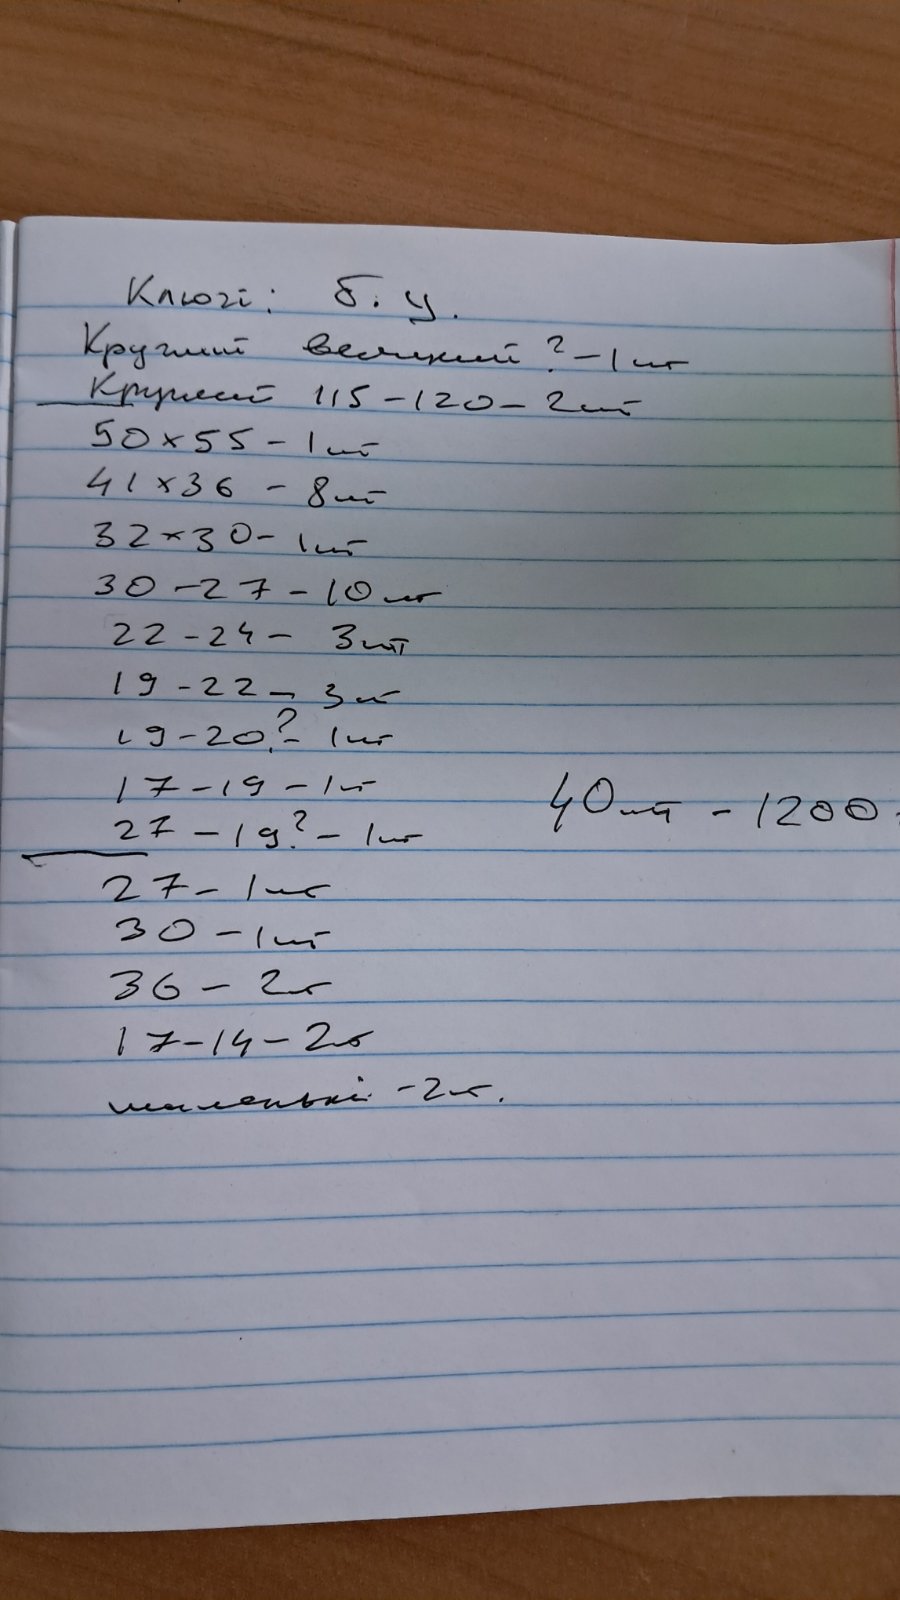 Ключі: б.у.
Круглий великий ? - 1 шт
Круглий 115 - 120 - 2 шт
50 x 55 - 1 шт
41 x 36 - 8 шт
32 x 30 - 1 шт
30 - 27 - 10 шт
22 - 24 - 3 шт
19 - 22 - 3 шт
19 - 20? - 1 шт
17 - 19 - 1 шт
40 шт - 1200
27 - 19? - 1 шт
27 - 1 шт
30 - 1 шт
36 - 2 шт
17 - 14 - 2 шт
маленькі - 2 шт.